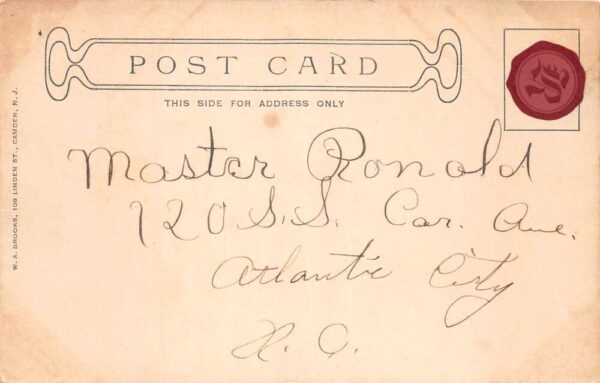 POST CARD
THIS SIDE FOR ADDRESS ONLY
W. A. BROOKS, 108 LINDEN ST., CAMDEN, N. J.
Master Ronald
120 S. S. Car. Ave.
Atlantic City